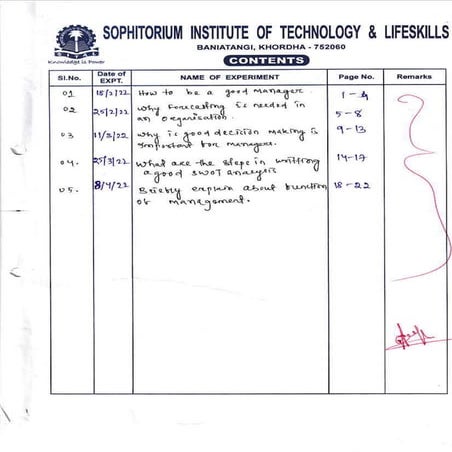 SOPHITORIUM INSTITUTE OF TECHNOLOGY & LIFESKILLS
BANIATANGI, KHORDHA - 752060
SITAL
Knowledge is Power
CONTENTS
Sl.No. Date of EXPT. NAME OF EXPERIMENT Page No. Remarks
01 18/2/22 How to be a good Manager. 1-4
02 25/2/22 Why Forecasting is needed in 5-8
an Organisation.
03 11/3/22 Why is good decision making is 9-13
important for managers.
04. 25/3/22 What are the steps in writting 14-17
a good SWOT analysis
05. 8/4/22 Briefly explain about function 18-22
of management.